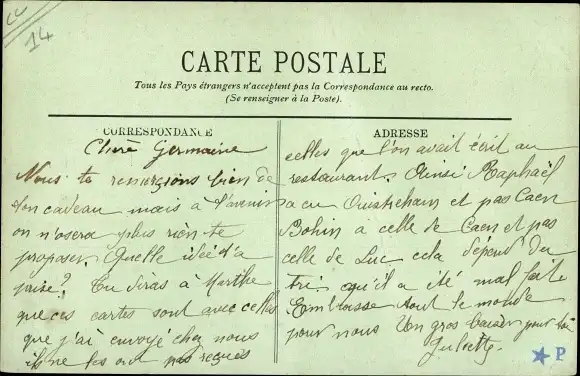 14
CARTE POSTALE
Tous les Pays étrangers n'acceptent pas la Correspondance au recto.
(Se renseigner à la Poste).
CORRESPONDANCE
Chère Germaine
Nous te remercions bien de
ton cadeau mais à l'avenir
on n'osera plus rien te
proposer. Quelle idée t'a
prise? Tu diras à Marthe
que ces cartes sont avec celles
que j'ai envoyé chez nous
ils ne les ont pas reçues
ADRESSE
celles que l'on avait écrit au
restaurant. Ainsi Raphaël
a eu Ouistreham et pas Caen
Bohin a celle de Caen et pas
celle de Luc cela dépend du
tri qu'il a été mal fait
Embrasse tout le monde
pour nous Un gros baiser pour toi
Juliette
P